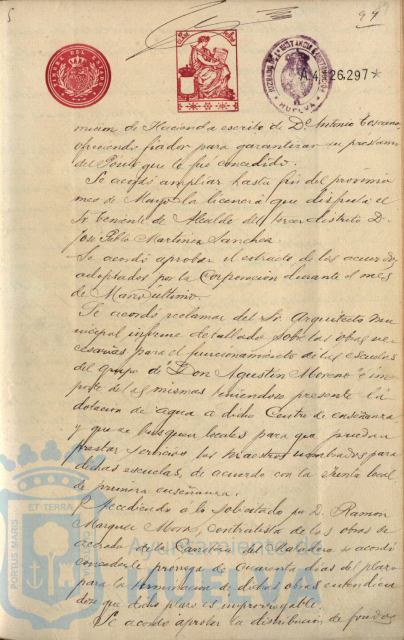 99
TIMBRE DEL ESTADO
HUELVA
A.4,126.297*
mision de Hacienda escrito de Dn Antonio
ofreciendo fiador para garantizar su prestamo
del Posito que le fue concedido.
Se acordó ampliar hasta fin del proximo
mes de Mayo la licencia que disfruta el
Sr Teniente de Alcalde del tercer distrito D.
José Pablo Martinez Sanchez.
Se acordó aprobar el extracto de los acuerdos
adoptados por la Corporación durante el mes
de Marzo último.
Se acordó reclamar del Sr. Arquitecto mu-
nicipal informe detallado sobre las obras ne-
cesarias para el funcionamiento de las escuelas
del grupo de "Don Agustin Moreno" e im-
porte de las mismas teniendo presente la
dotación de agua a dicho Centro de enseñanza
y que se busquen locales para que puedan
prestar servicios los maestros nombrados para
dichas escuelas, de acuerdo con la Junta local
de primera enseñanza.
Accediendo á lo solicitado por D. Ramon
Marquez Mora, contratista de las obras de
acerado de la Carretera del Matadero se acordó
concederle prorroga de cuarenta dias del plazo
para la terminación de dichas obras entendien-
dose que dicho plazo es improrrogable.
Se acordó aprobar la distribución de fondos
PORTUS MARIS
ET TERRAE
Ayuntamiento de
HUELVA